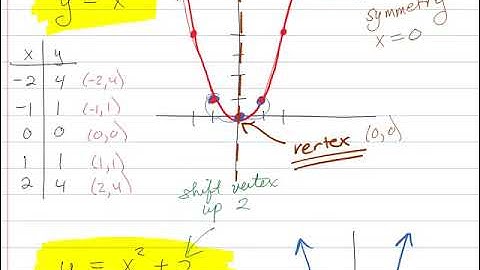 y = x
symmetry
x = 0
x y
-2 4 (-2,4)
-1 1 (-1,1)
0 0 (0,0)
1 1 (1,1)
2 4 (2,4)
vertex (0,0)
shift vertex
up 2
y = x² + 2